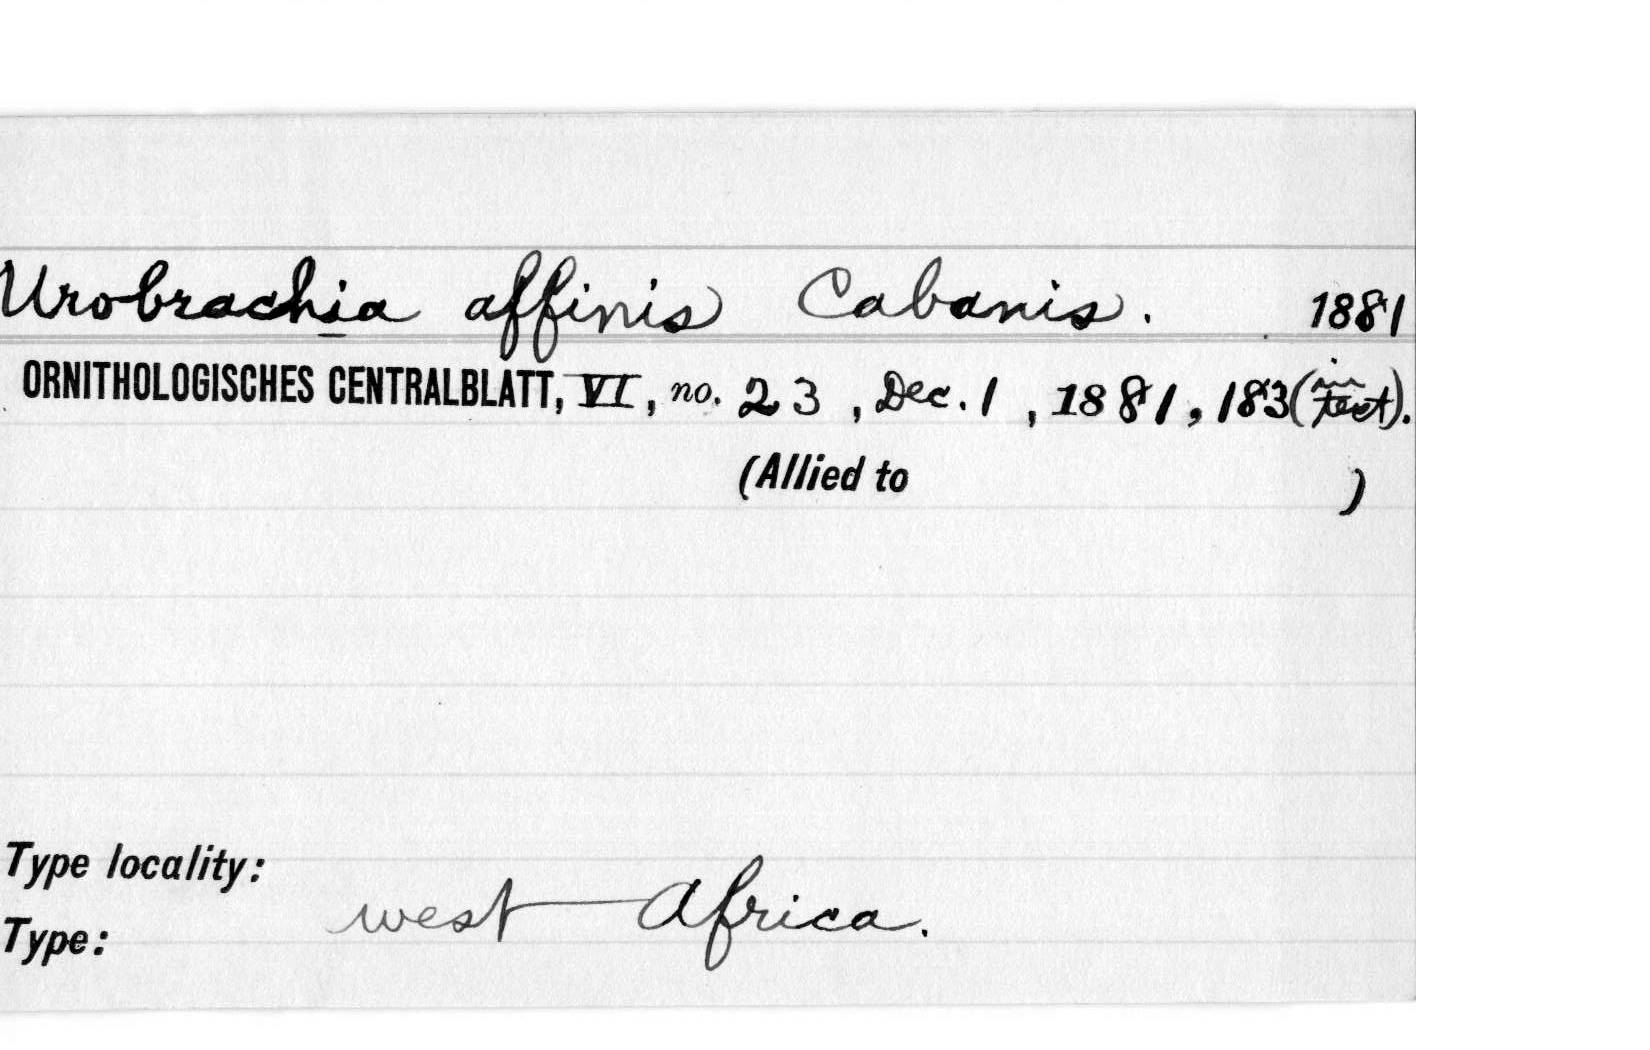 Urobrachia affinis Cabanis. 1881
ORNITHOLOGISCHES CENTRALBLATT, VI, no. 23, Dec. 1, 1881, 183 (in text).
(Allied to )
Type locality:
west Africa.
Type: